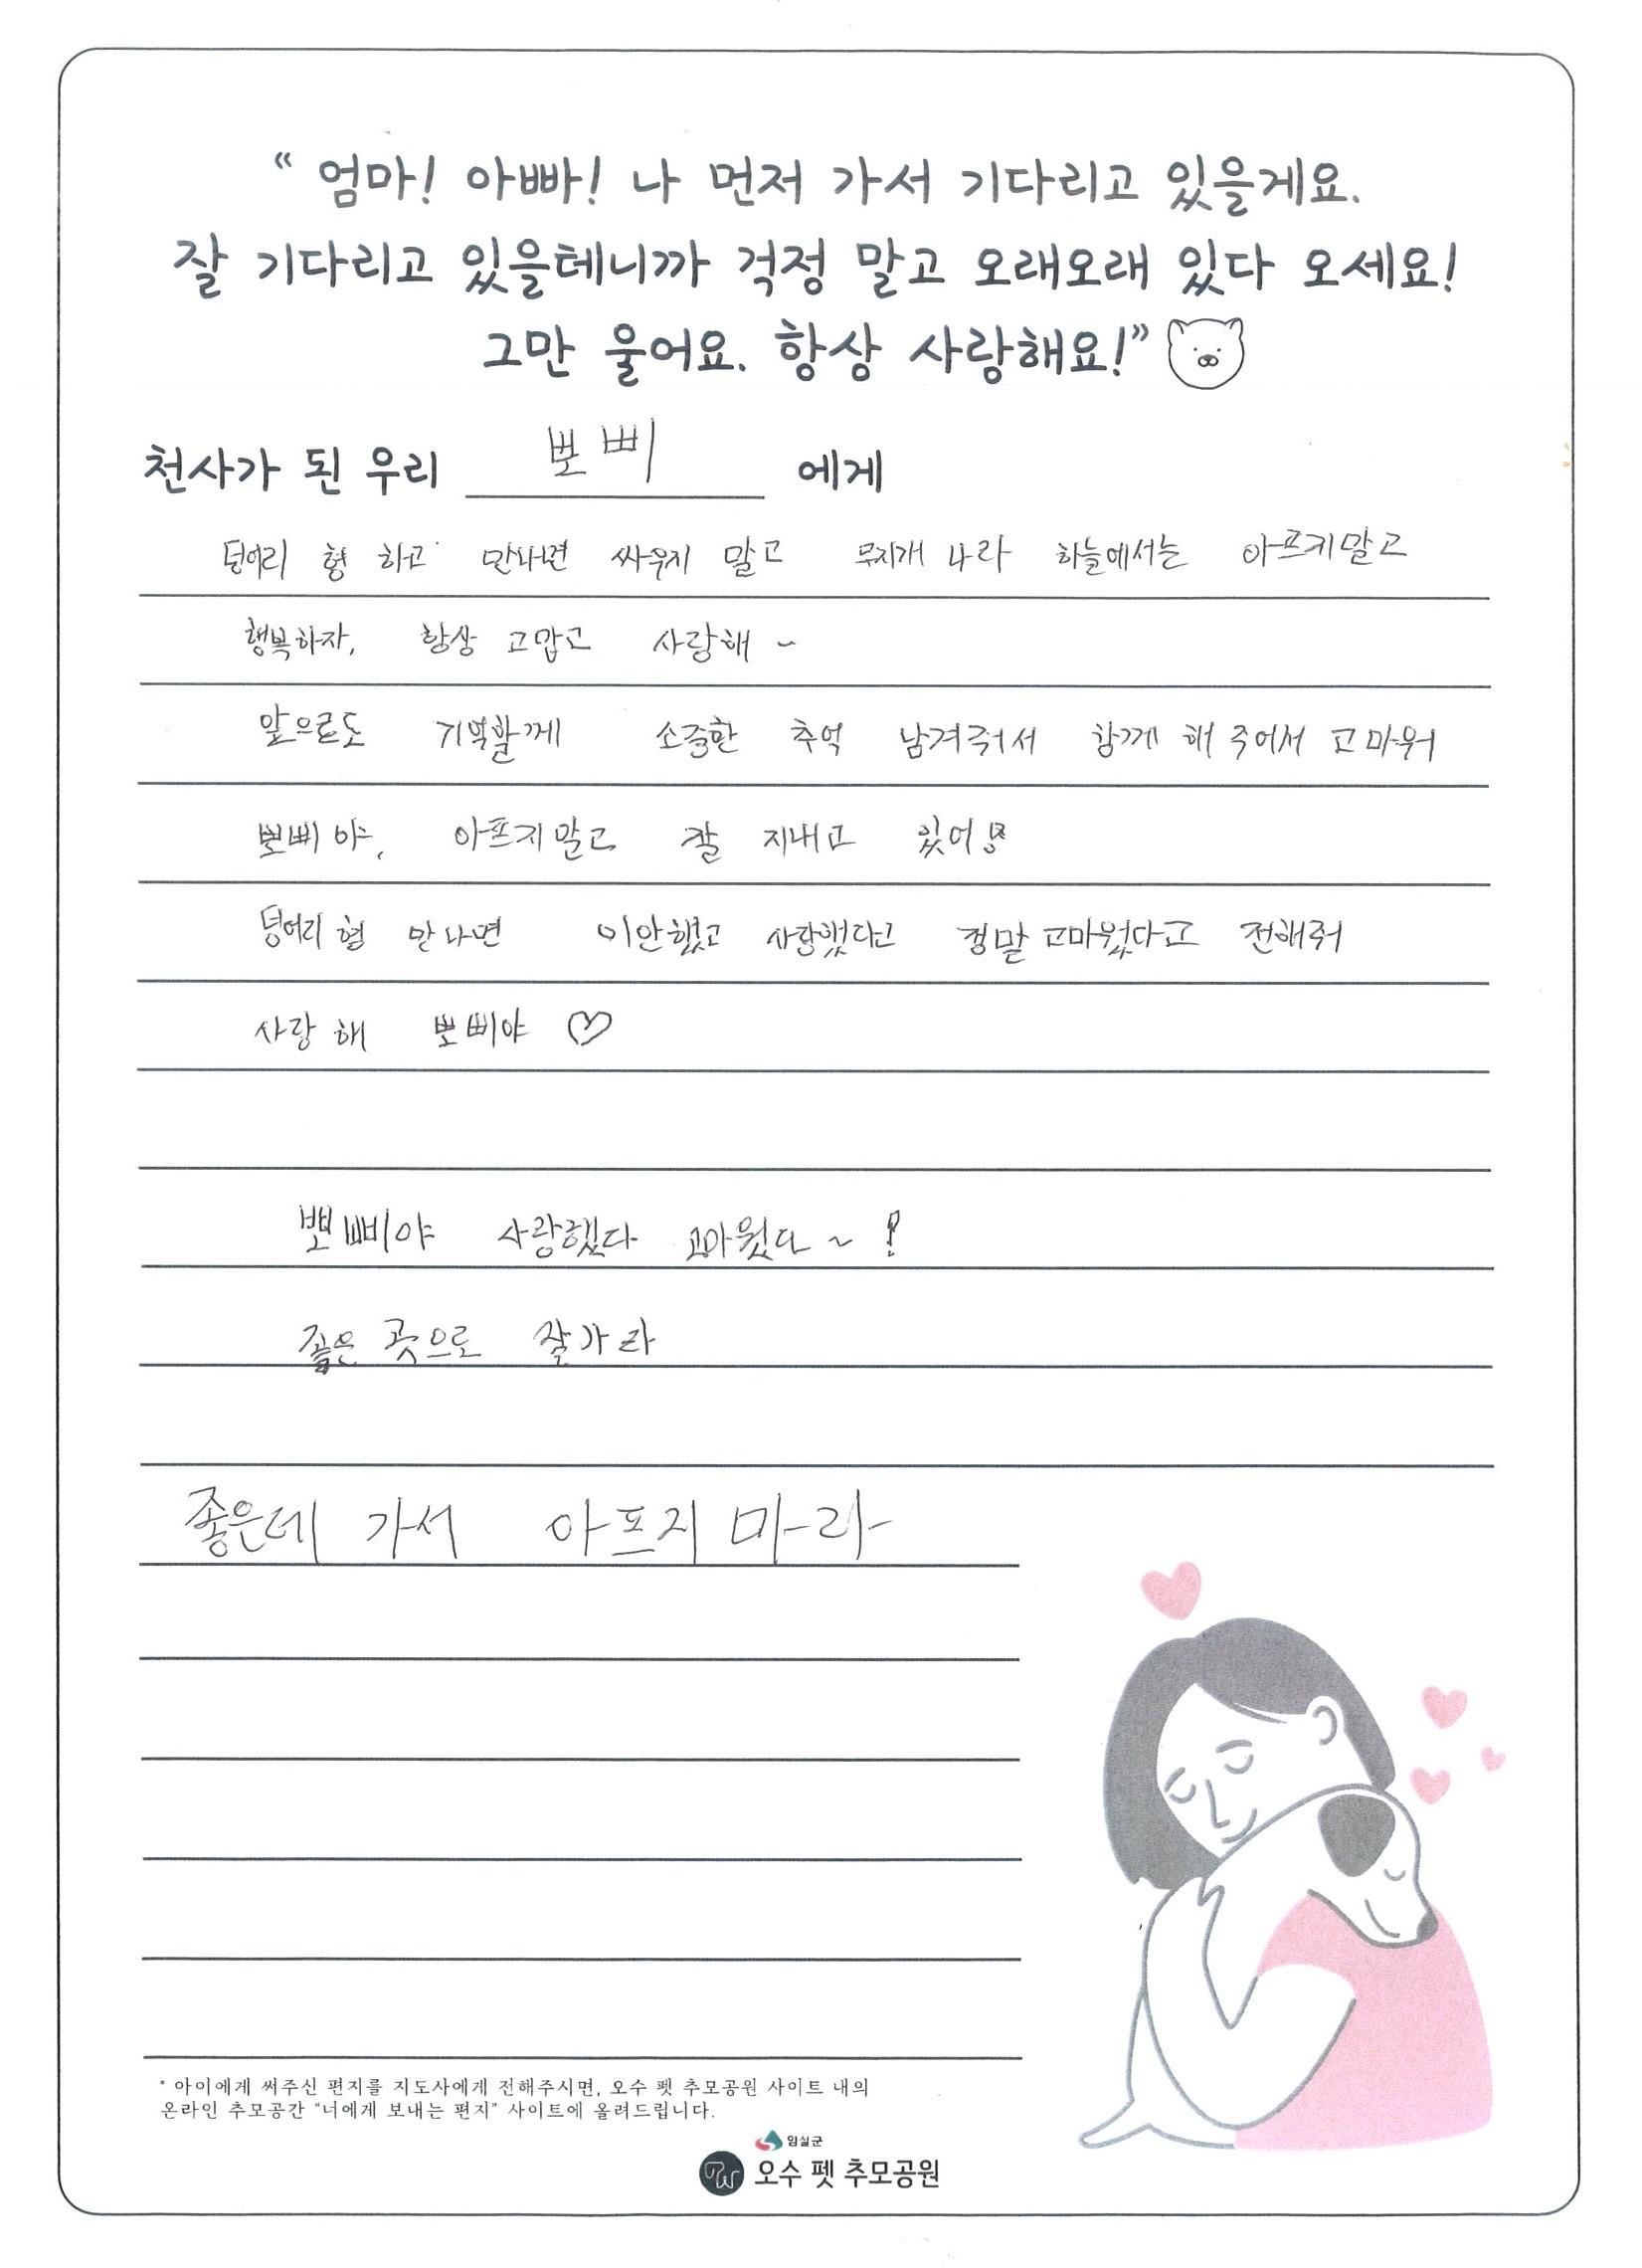 “ 엄마! 아빠! 나 먼저 가서 기다리고 있을게요.
잘 기다리고 있을테니까 걱정 말고 오래오래 있다 오세요!
그만 울어요. 항상 사랑해요!”
천사가 된 우리 뽀삐 에게
덩어리 형 하고 만나면 싸우지 말고 무지개 나라 하늘에서는 아프지말고
행복하자, 항상 고맙고 사랑해 ~
앞으로도 기억할께 소중한 추억 남겨줘서 함께 해 주어서 고마워
뽀삐야, 아프지말고 잘 지내고 있어!
덩어리 형 만나면 미안했고 사랑했다고 정말 고마웠다고 전해줘
사랑해 뽀삐야 ♡
뽀삐야 사랑했다 고마웠다 ~ !
좋은 곳으로 잘가라
좋은데 가서 아프지 마라
* 아이에게 써주신 편지를 지도사에게 전해주시면, 오수 펫 추모공원 사이트 내의
온라인 추모공간 “너에게 보내는 편지” 사이트에 올려드립니다.
임실군
오수 펫 추모공원